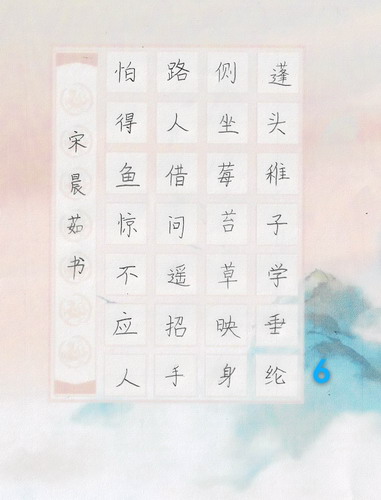 蓬头稚子学垂纶
侧坐莓苔草映身
路人借问遥招手
怕得鱼惊不应人
宋晨茹书
6